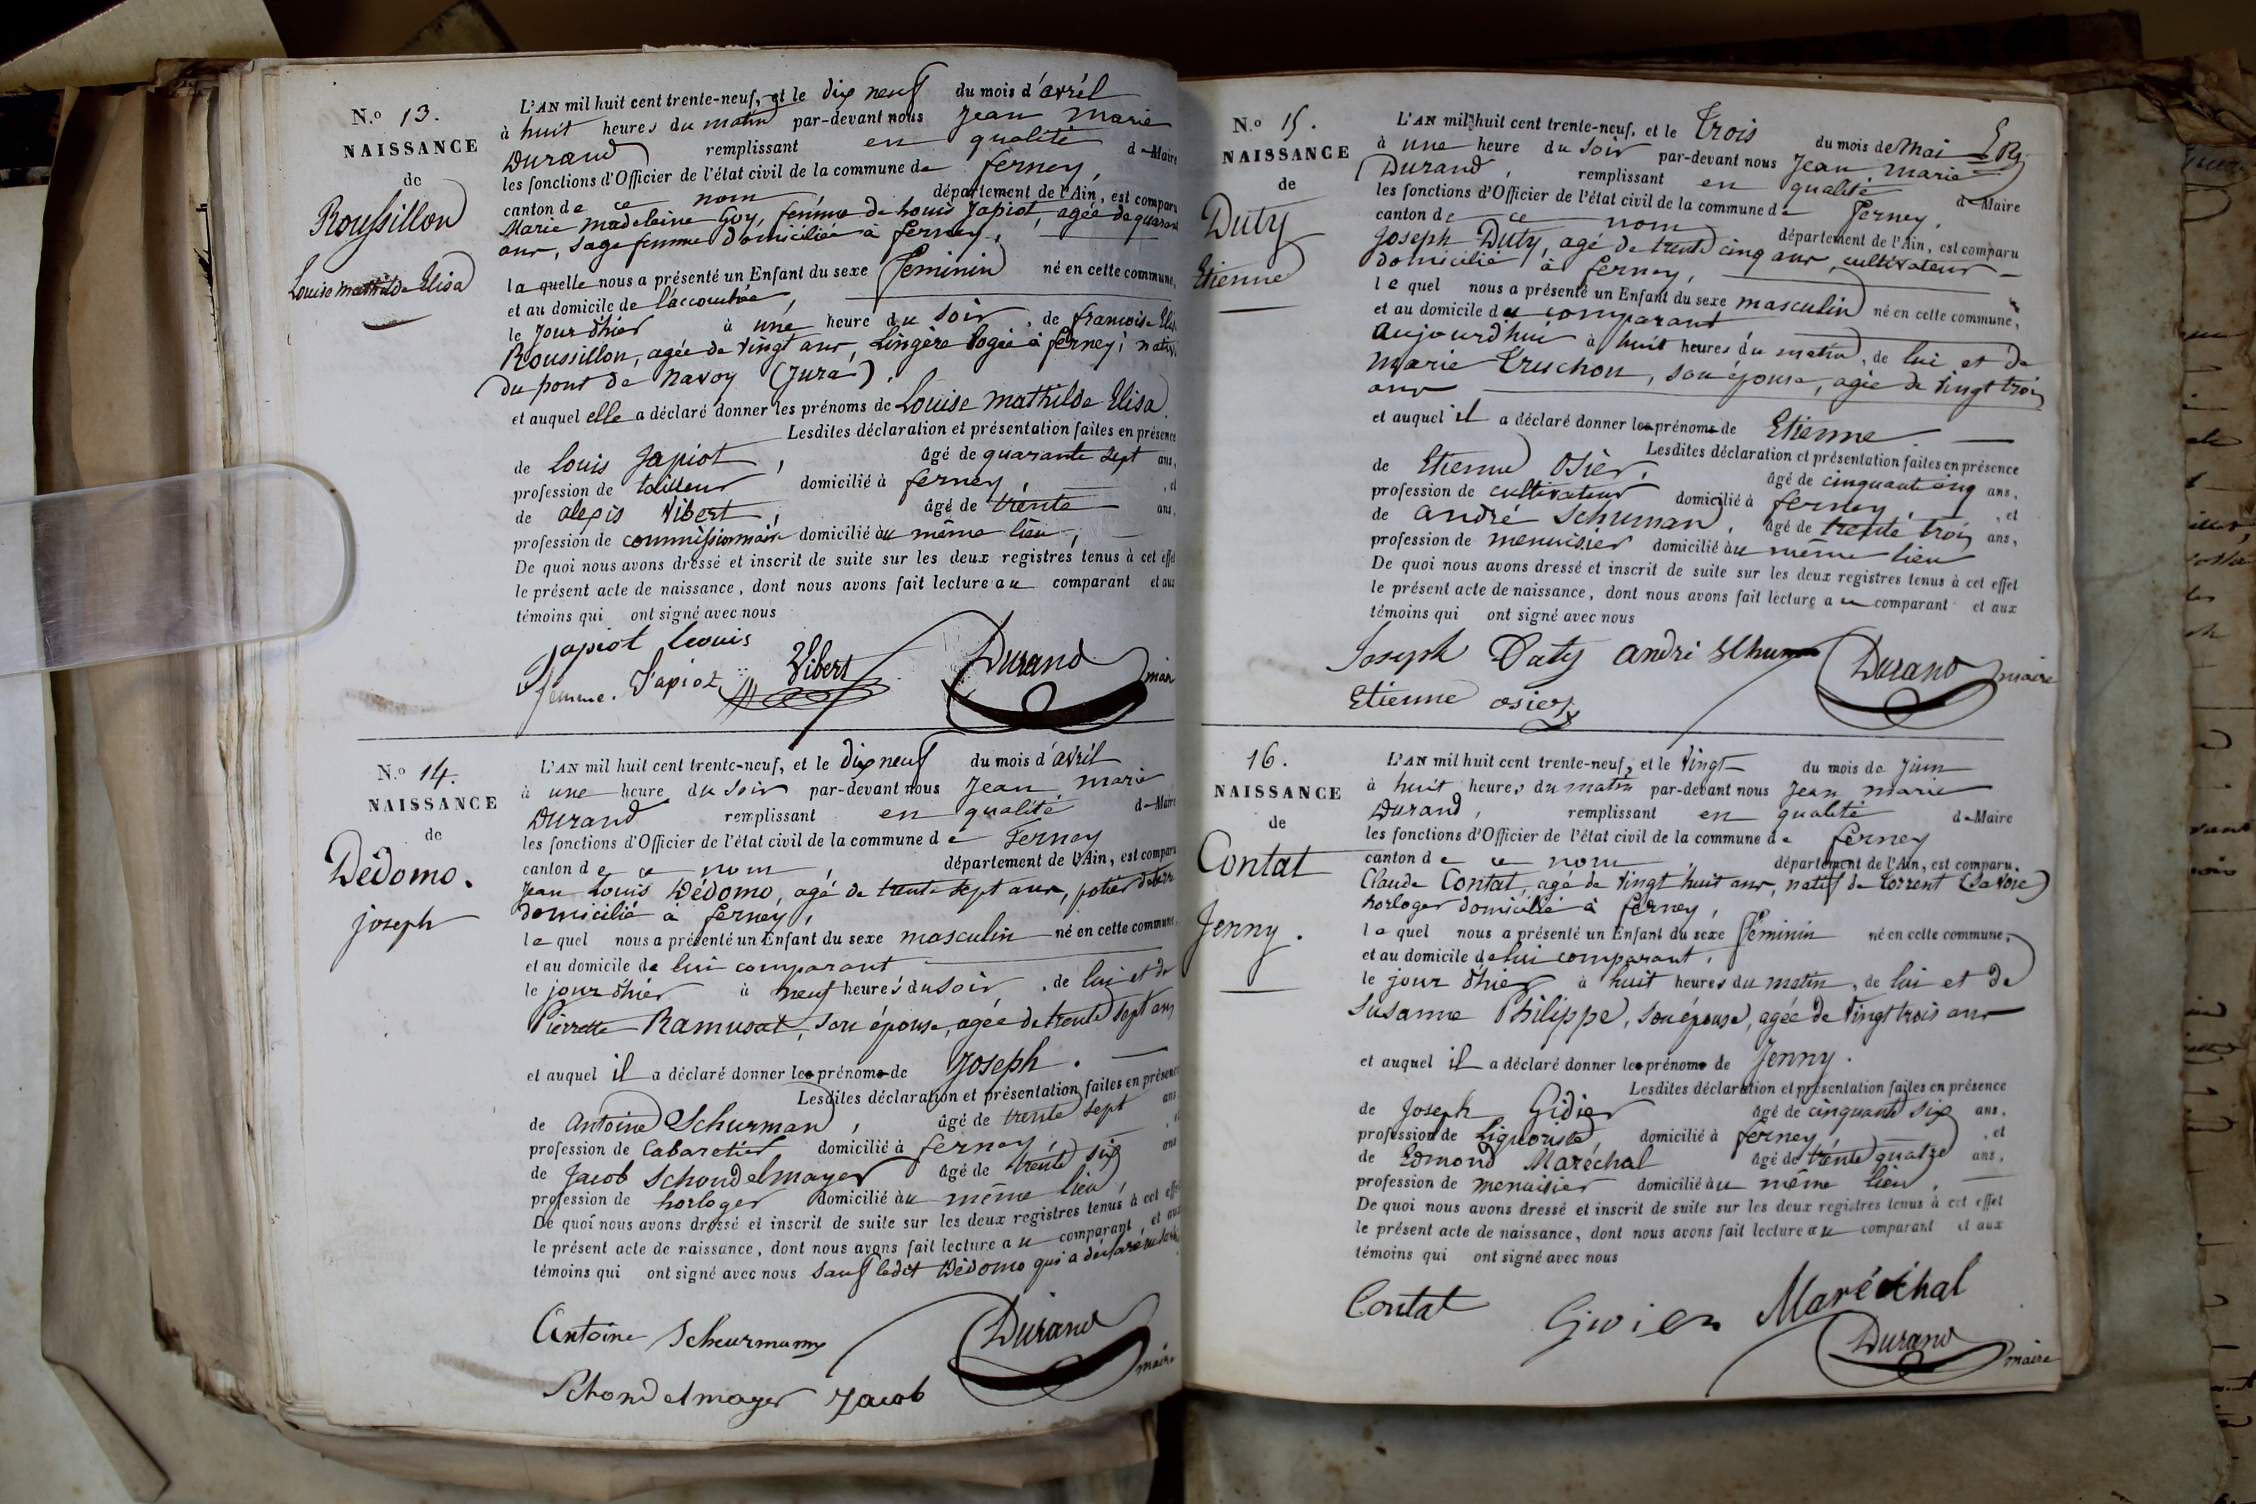 N.o 13.
NAISSANCE
de
Roussillon
Louise Mathilde Elisa
L'AN mil huit cent trente-neuf, et le dix neuf du mois d'avril
à huit heures du matin par-devant nous Jean Marie
Durand remplissant en qualité de Maire
les fonctions d'Officier de l'état civil de la commune de ferney,
canton de ce nom département de l'Ain, est comparu
Marie Madeleine Goy, femme de Louis Japiot, agée de quarante
ans, sage femme domiciliée à ferney,
la quelle nous a présenté un Enfant du sexe feminin né en cette commune,
et au domicile de l'accouchée,
le jour d'hier à une heure du soir, de francoise Elis
Roussillon, agée de vingt ans, Lingère logée à ferney, native
du pont de navoy (Jura),
et auquel elle a déclaré donner les prénoms de Louise Mathilde Elisa.
Lesdites déclaration et présentation faites en présence
de Louis Japiot, âgé de quarante sept ans,
profession de tailleur domicilié à ferney, et
de alexis Vibert, âgé de trente ans,
profession de commissionnaire domicilié au même lieu,
De quoi nous avons dressé et inscrit de suite sur les deux registres tenus à cet effet
le présent acte de naissance, dont nous avons fait lecture au comparant et aux
témoins qui ont signé avec nous
Japiot Leouis
femme. Japiot Vibert Durand maire
N.o 14.
NAISSANCE
de
Dédomo.
joseph
L'AN mil huit cent trente-neuf, et le dix neuf du mois d'avril
à une heure du soir par-devant nous Jean Marie
Durand remplissant en qualité de Maire
les fonctions d'Officier de l'état civil de la commune de Ferney
canton de ce nom, département de l'Ain, est comparu
Jean Louis Dédomo, agé de trente sept ans, potier de terre
domicilié à ferney,
le quel nous a présenté un Enfant du sexe masculin né en cette commune,
et au domicile de lui comparant
le jour d'hier à neuf heures du soir, de lui et de
Pierrette Ramusat, son épouse, agée de trente sept ans
et auquel il a déclaré donner les prénoms de Joseph.
Lesdites déclaration et présentation faites en présence
de Antoine Schurman, âgé de trente sept ans
profession de Cabaretier domicilié à ferney,
de Jacob Schondelmayer âgé de trente six ans
profession de horloger domicilié au même lieu,
De quoi nous avons dressé et inscrit de suite sur les deux registres tenus à cet effet
le présent acte de naissance, dont nous avons fait lecture au comparant, et aux
témoins qui ont signé avec nous sauf ledit Dédomo qui a déclaré ne
Antoine Scheurmann Durand maire
Schondelmayer Jacob
N.o 15.
NAISSANCE
de
Duty
Etienne
L'AN mil huit cent trente-neuf, et le Trois du mois de Mai
à une heure du soir par-devant nous Jean Marie
Durand, remplissant en qualité de Maire
les fonctions d'Officier de l'état civil de la commune de Ferney,
canton de ce nom département de l'Ain, est comparu
Joseph Duty, agé de trente cinq ans, cultivateur
domicilié à ferney,
le quel nous a présenté un Enfant du sexe masculin né en cette commune,
et au domicile du comparant
aujourd'hui à huit heures du matin, de lui et de
Marie Truchon, son épouse, agée de vingt trois
ans
et auquel il a déclaré donner les prénoms de Etienne
Lesdites déclaration et présentation faites en présence
de Etienne Osier, âgé de cinquante cinq ans,
profession de cultivateur domicilié à ferney, et
de andré Schuman, âgé de trente trois ans,
profession de menuisier domicilié au même lieu
De quoi nous avons dressé et inscrit de suite sur les deux registres tenus à cet effet
le présent acte de naissance, dont nous avons fait lecture au comparant et aux
témoins qui ont signé avec nous
Joseph Daty andré Durand maire
Etienne osier
16.
NAISSANCE
de
Contat
Jenny.
L'AN mil huit cent trente-neuf, et le Vingt du mois de Juin
à huit heures du matin par-devant nous Jean Marie
Durand, remplissant en qualité de Maire
les fonctions d'Officier de l'état civil de la commune de ferney
canton de ce nom, département de l'Ain, est comparu,
Claude Contat, agé de vingt huit ans, natif de Torrent (Savoie)
horloger domicilié à ferney,
le quel nous a présenté un Enfant du sexe feminin né en cette commune,
et au domicile de lui comparant,
le jour d'hier à huit heures du matin, de lui et de
Susanne Philippe, son épouse, agée de vingt trois ans
et auquel il a déclaré donner les prénoms de Jenny.
Lesdites déclaration et présentation faites en présence
de Joseph Gidier âgé de cinquante six ans,
profession de liquoriste, domicilié à ferney, et
de Edmond Maréchal âgé de trente quatre ans,
profession de menuisier domicilié au même lieu,
De quoi nous avons dressé et inscrit de suite sur les deux registres tenus à cet effet
le présent acte de naissance, dont nous avons fait lecture au comparant et aux
témoins qui ont signé avec nous
Contat Maréchal
Durand maire